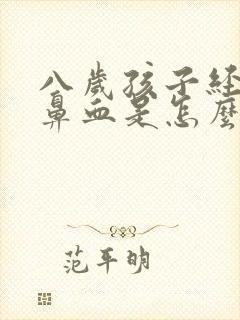 八歲孩子经
鼻血是怎麼
范平明